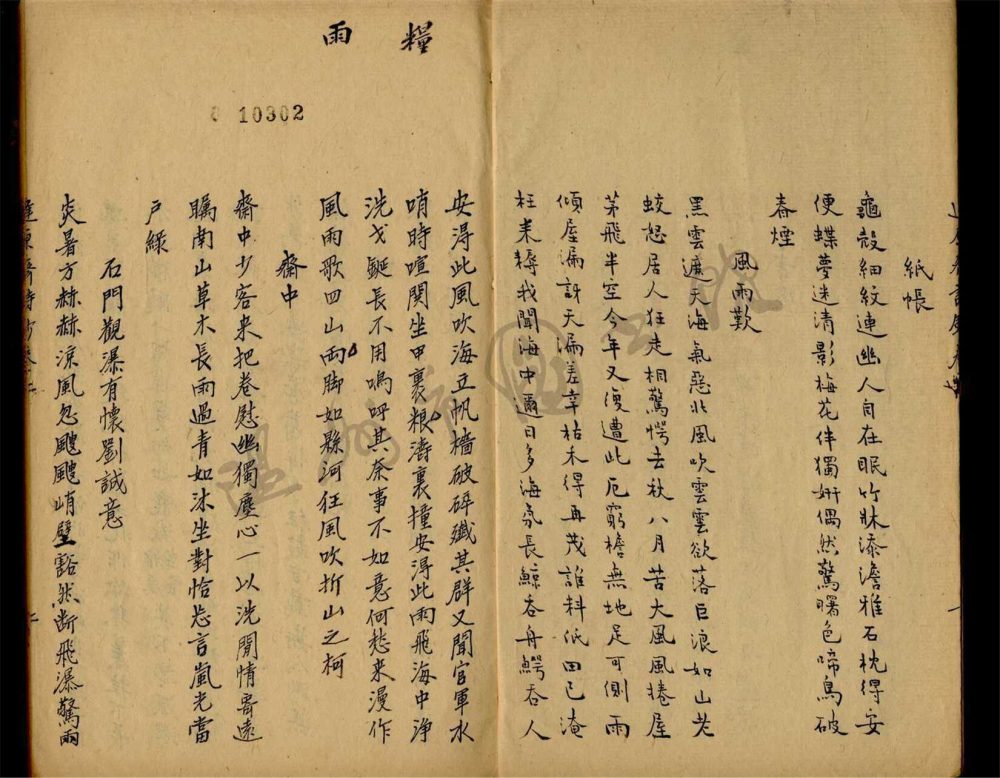 紙帳
龜殼細紋連幽人自在眠竹牀添澹雅石枕得安
便蝶夢迷清影梅花伴獨妍偶然驚曙色啼鳥破
春煙
風雨歎
黑雲遮天海氣惡北風吹雲雲欲落巨浪如山老
蛟怒居人狂走相驚愕去秋八月苦大風風捲屋
茅飛半空今年又復遭此厄窮檐無地足可側雨
傾屋漏訝天漏差幸枯禾得再茂誰料低田已淹
枉耒耨我聞海中邇日多海氛長鯨吞舟鱷吞人
糧
雨
10302
安得此風吹海立帆檣破碎殲其群又聞官軍水
哨時喧閧坐甲裹粮濤裏撞安得此雨飛海中淨
洗戈鋋長不用嗚呼其奈事不如意何愁來漫作
風雨歌四山兩脚如縣河狂風吹折山之柯
齋中
齋中少客來把卷慰幽獨塵心一以洗閒情寄遠
矚南山草木長雨過青如沐坐對恰忘言嵐光當
戶綠
石門觀瀑有懷劉誠意
炎暑方赫赫涼風忽颼颼峭壁豁然斷飛瀑驚雨